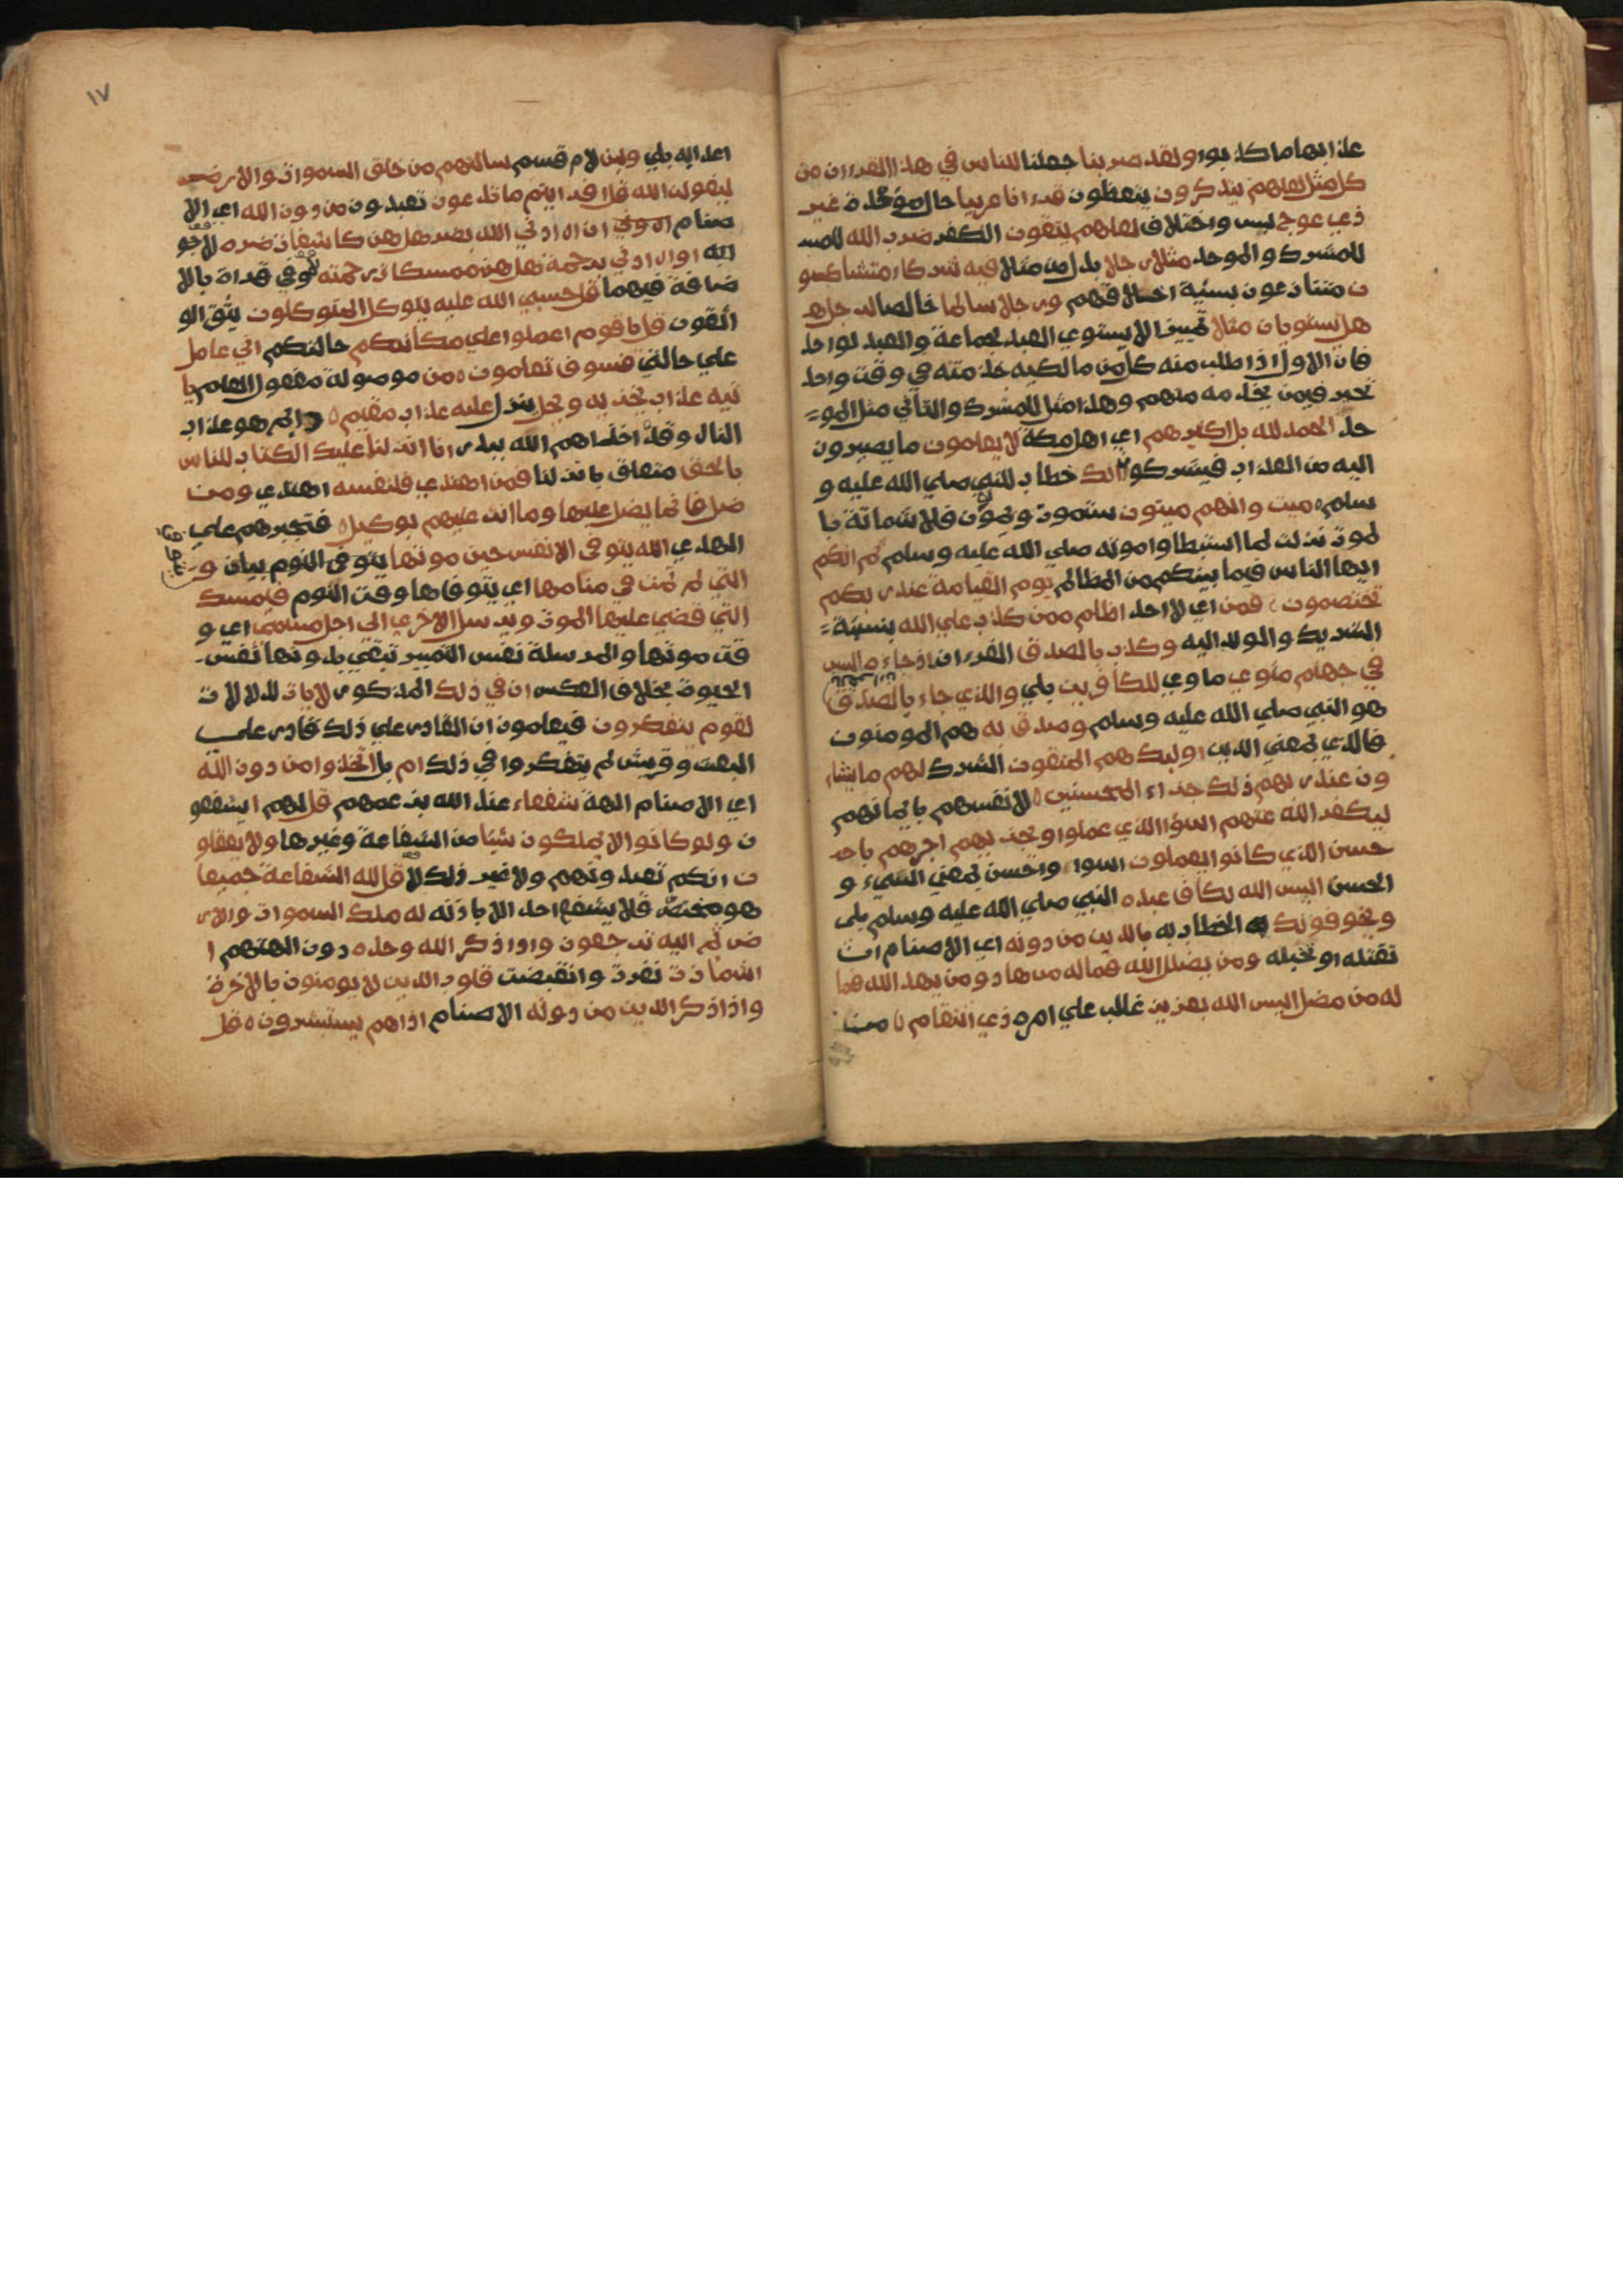 عذابها ما كذبوا ولقد ضربنا جعلنا للناس في هذا القرءان من
كل مثل لعلهم يتذكرون يتعظون قرءانا عربيا حال موكدة غير
ذي عوج لبس واختلاف لعلهم يتقون الكفر ضرب الله للمشـ
للمشرك والموحد مثلا رجلا بدل من مثلا فيه شركاء متشاكسو
ن متنازعون سيئة اخلاقهم ورجلا سالما خالصا لرجل هـ
هل يستويان مثلا تمييز الا يستوي العبد لجماعة والعبد لواحد
فان الاول اذا طلب منه كل من مالكيه خدمته في وقت واحد
تحير فيمن يخدمه منهم وهذا مثل للمشرك والثاني مثل المو
حد الحمد لله بل اكثرهم اي اهل مكة لا يعلمون ما يصيرون
اليه من العذاب فيشركوا انك خطاب للنبي صلي الله عليه و
سلم ميت وانهم ميتون ستموت ويموتون فلا شماتة با
لموت نزلت لما استبطاوا موته صلي الله عليه وسلم ثم انكم
ايها الناس فيما بينكم من المظالم يوم القيامة عند ربكم
تختصمون فمن اي لا احد اظلم ممن كذب علي الله بنسبة
الشريك والولد اليه وكذب بالصدق القرءان اذ جاءه اليس
في جهنم مثوي ماوي للكافرين بلي والذي جاء بالصدق
هو النبي صلي الله عليه وسلم وصدق به هم المومنون
فالذي بمعني الذين اوليك هم المتقون الشرك لهم ما يشاء
ون عند ربهم ذلك جزاء المحسنين لانفسهم بايمانهم
ليكفر الله عنهم اسوؤا الذي عملوا ويجزيهم اجرهم باحـ
حسن الذي كانوا يعملون اسوء واحسن بمعني السيء و
الحسن اليس الله بكاف عبده النبي صلي الله عليه وسلم بلي
ويخوفونك الخطاب به بالذين من دونه اي الاصنام ان
تقتله او تخبله ومن يضلل الله فما له من هاد ومن يهد الله فما
له من مضل اليس الله بعزيز غالب علي امره ذي انتقام من
١٧
اعدايه بلي ولين لام قسم سالتهم من خلق السموات والارض
ليقولن الله قل افرايتم ما تدعون تعبدون من دون الله اي الا
صنام ان ارادني الله بضر هل هن كاشفات ضره لا
او ارادني برحمة هل هن ممسكات رحمته لا وفي قراة بالا
ضافة فيهما قل حسبي الله عليه يتوكل المتوكلون يثق الو
اثقون قل يا قوم اعملوا علي مكانتكم حالتكم اني عامل
علي حالتي فسوف تعلمون من موصولة مفعول العلم يا
تيه عذاب يخزيه ويحل ينزل عليه عذاب مقيم دايم هو عذاب
النار وقد اخزاهم الله ببدر انا انزلنا عليك الكتاب للناس
بالحق متعلق بانزلنا فمن اهتدي فلنفسه اهتدي ومن
ضل فانما يضل عليها وما انت عليهم بوكيل فتجبرهم علي
الهدي الله يتوفي الانفس حين موتها يتوفي النوم بيان و
يتوفي
التي لم تمت في منامها اي يتوفاها وقت النوم فيمسك
التي قضي عليها الموت ويرسل الاخري الي اجل مسمي اي و
قت موتها والمرسلة نفس التمييز تبقي بدونها نفس
الحيوة بخلاف العكس ان في ذلك المذكور لايات لدلالات
لقوم يتفكرون فيعلمون ان القادر علي ذلك قادر علي
البعث وقريش لم يتفكروا في ذلك ام بل اتخذوا من دون الله
اي الاصنام الهة شفعاء عند الله بزعمهم قل لهم ايشفعو
ن ولو كانوا لا يملكون شيا من الشفاعة وغيرها ولا يعقلو
ن انكم تعبدونهم ولا غير ذلك لا قل لله الشفاعة جميعا
هو مختص فلا يشفع احد الا باذنه له ملك السموات والار
ض ثم اليه ترجعون واذا ذكر الله وحده دون الهتهم ا
اشمازت نفرت وانقبضت قلوب الذين لا يومنون بالاخرة
واذا ذكر الذين من دونه الاصنام اذا هم يستبشرون قل